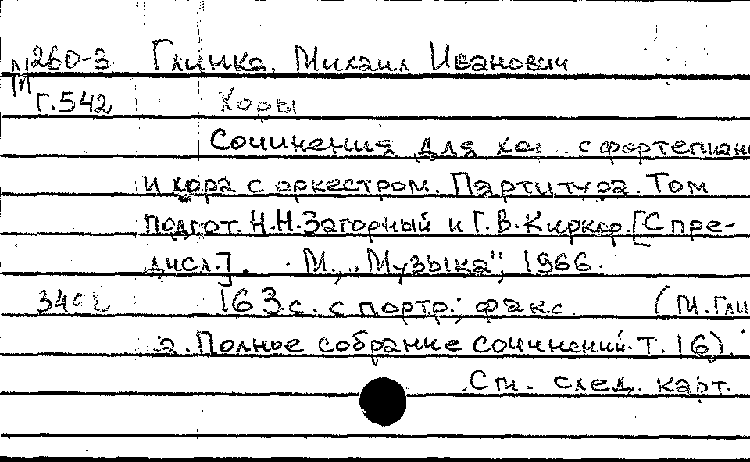 260-3 Глинка, Михаил Иванович
М
Г.542 Хоры
Сочинения для хо с фортепиано
и хора с оркестром. Партитура. Том
подгот. Н.Н.Загорный и Г.В.Киркор.[С пре-
дисл.]. М., „Музыка", 1966.
163 с. с портр.; факс. (М.Гли
а. Полное собрание сочинений. Т.16).
См. след. карт.